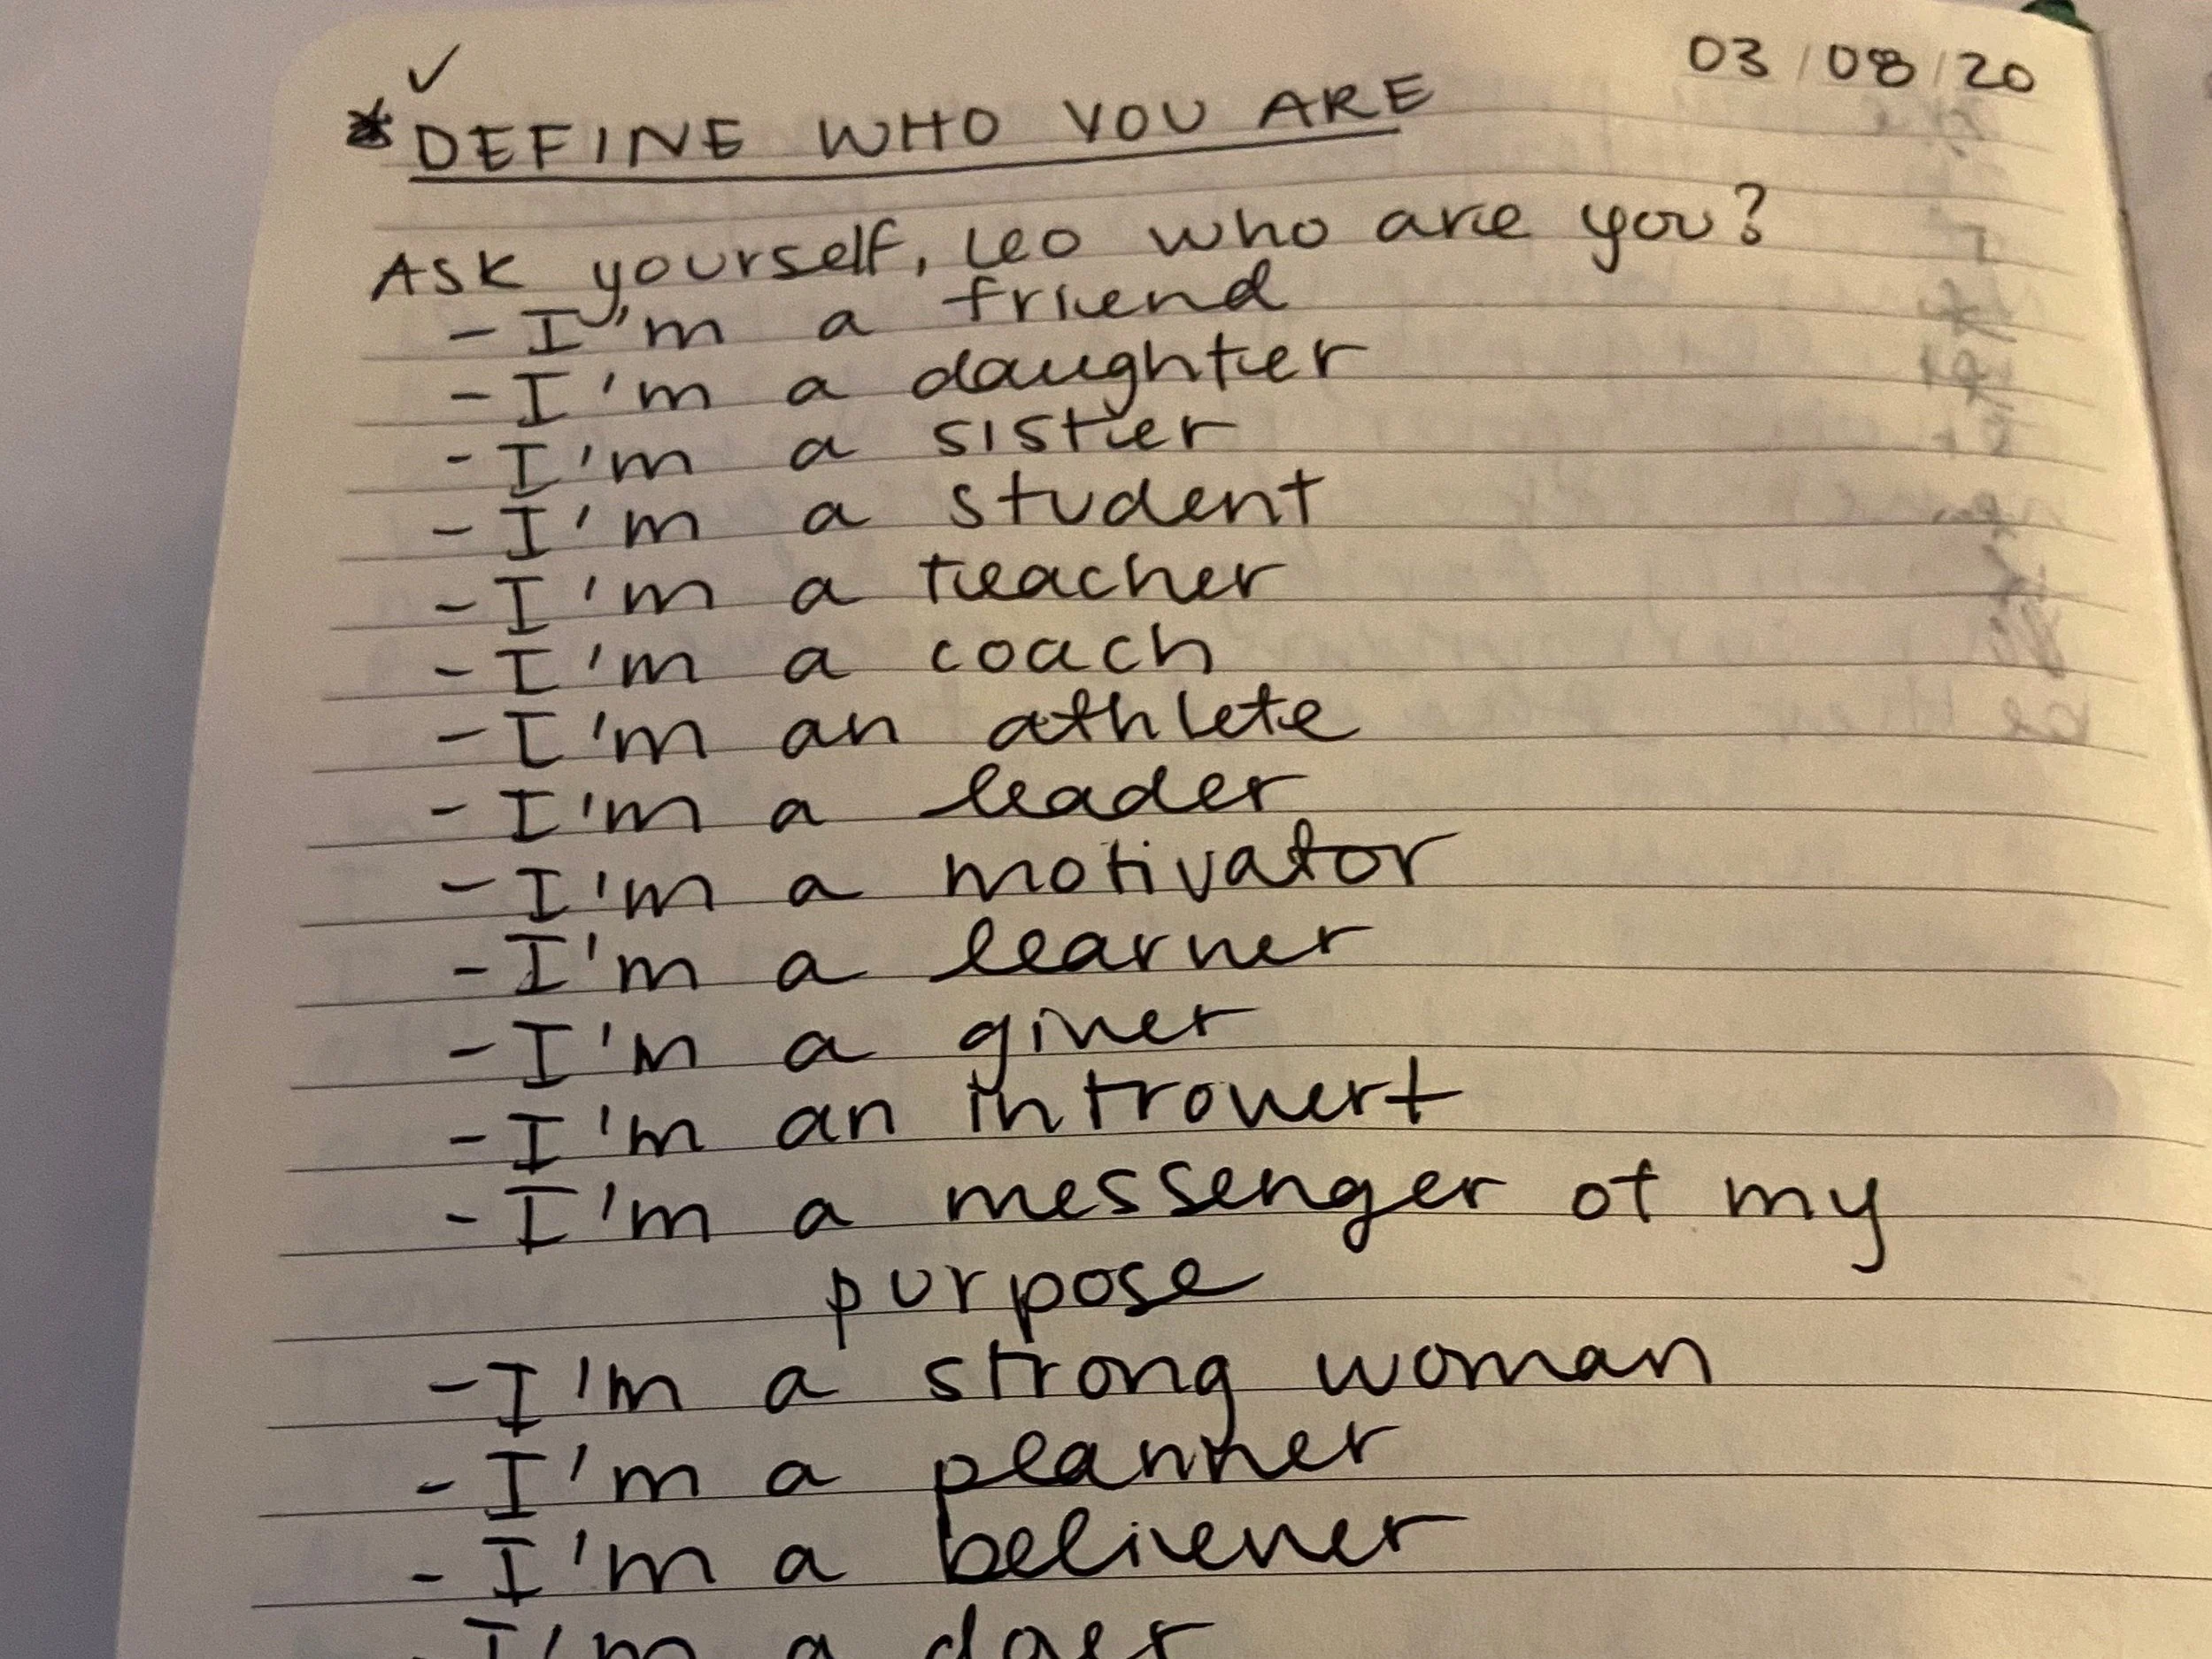 ✓
03/08/20
* DEFINE WHO YOU ARE
Ask yourself, Leo who are you?
- I'm a friend
- I'm a daughter
- I'm a sister
- I'm a student
- I'm a teacher
- I'm a coach
- I'm an athlete
- I'm a leader
- I'm a motivator
- I'm a learner
- I'm a giver
- I'm an introvert
- I'm a messenger of my
purpose
- I'm a strong woman
- I'm a planner
- I'm a believer
- I'm a doer